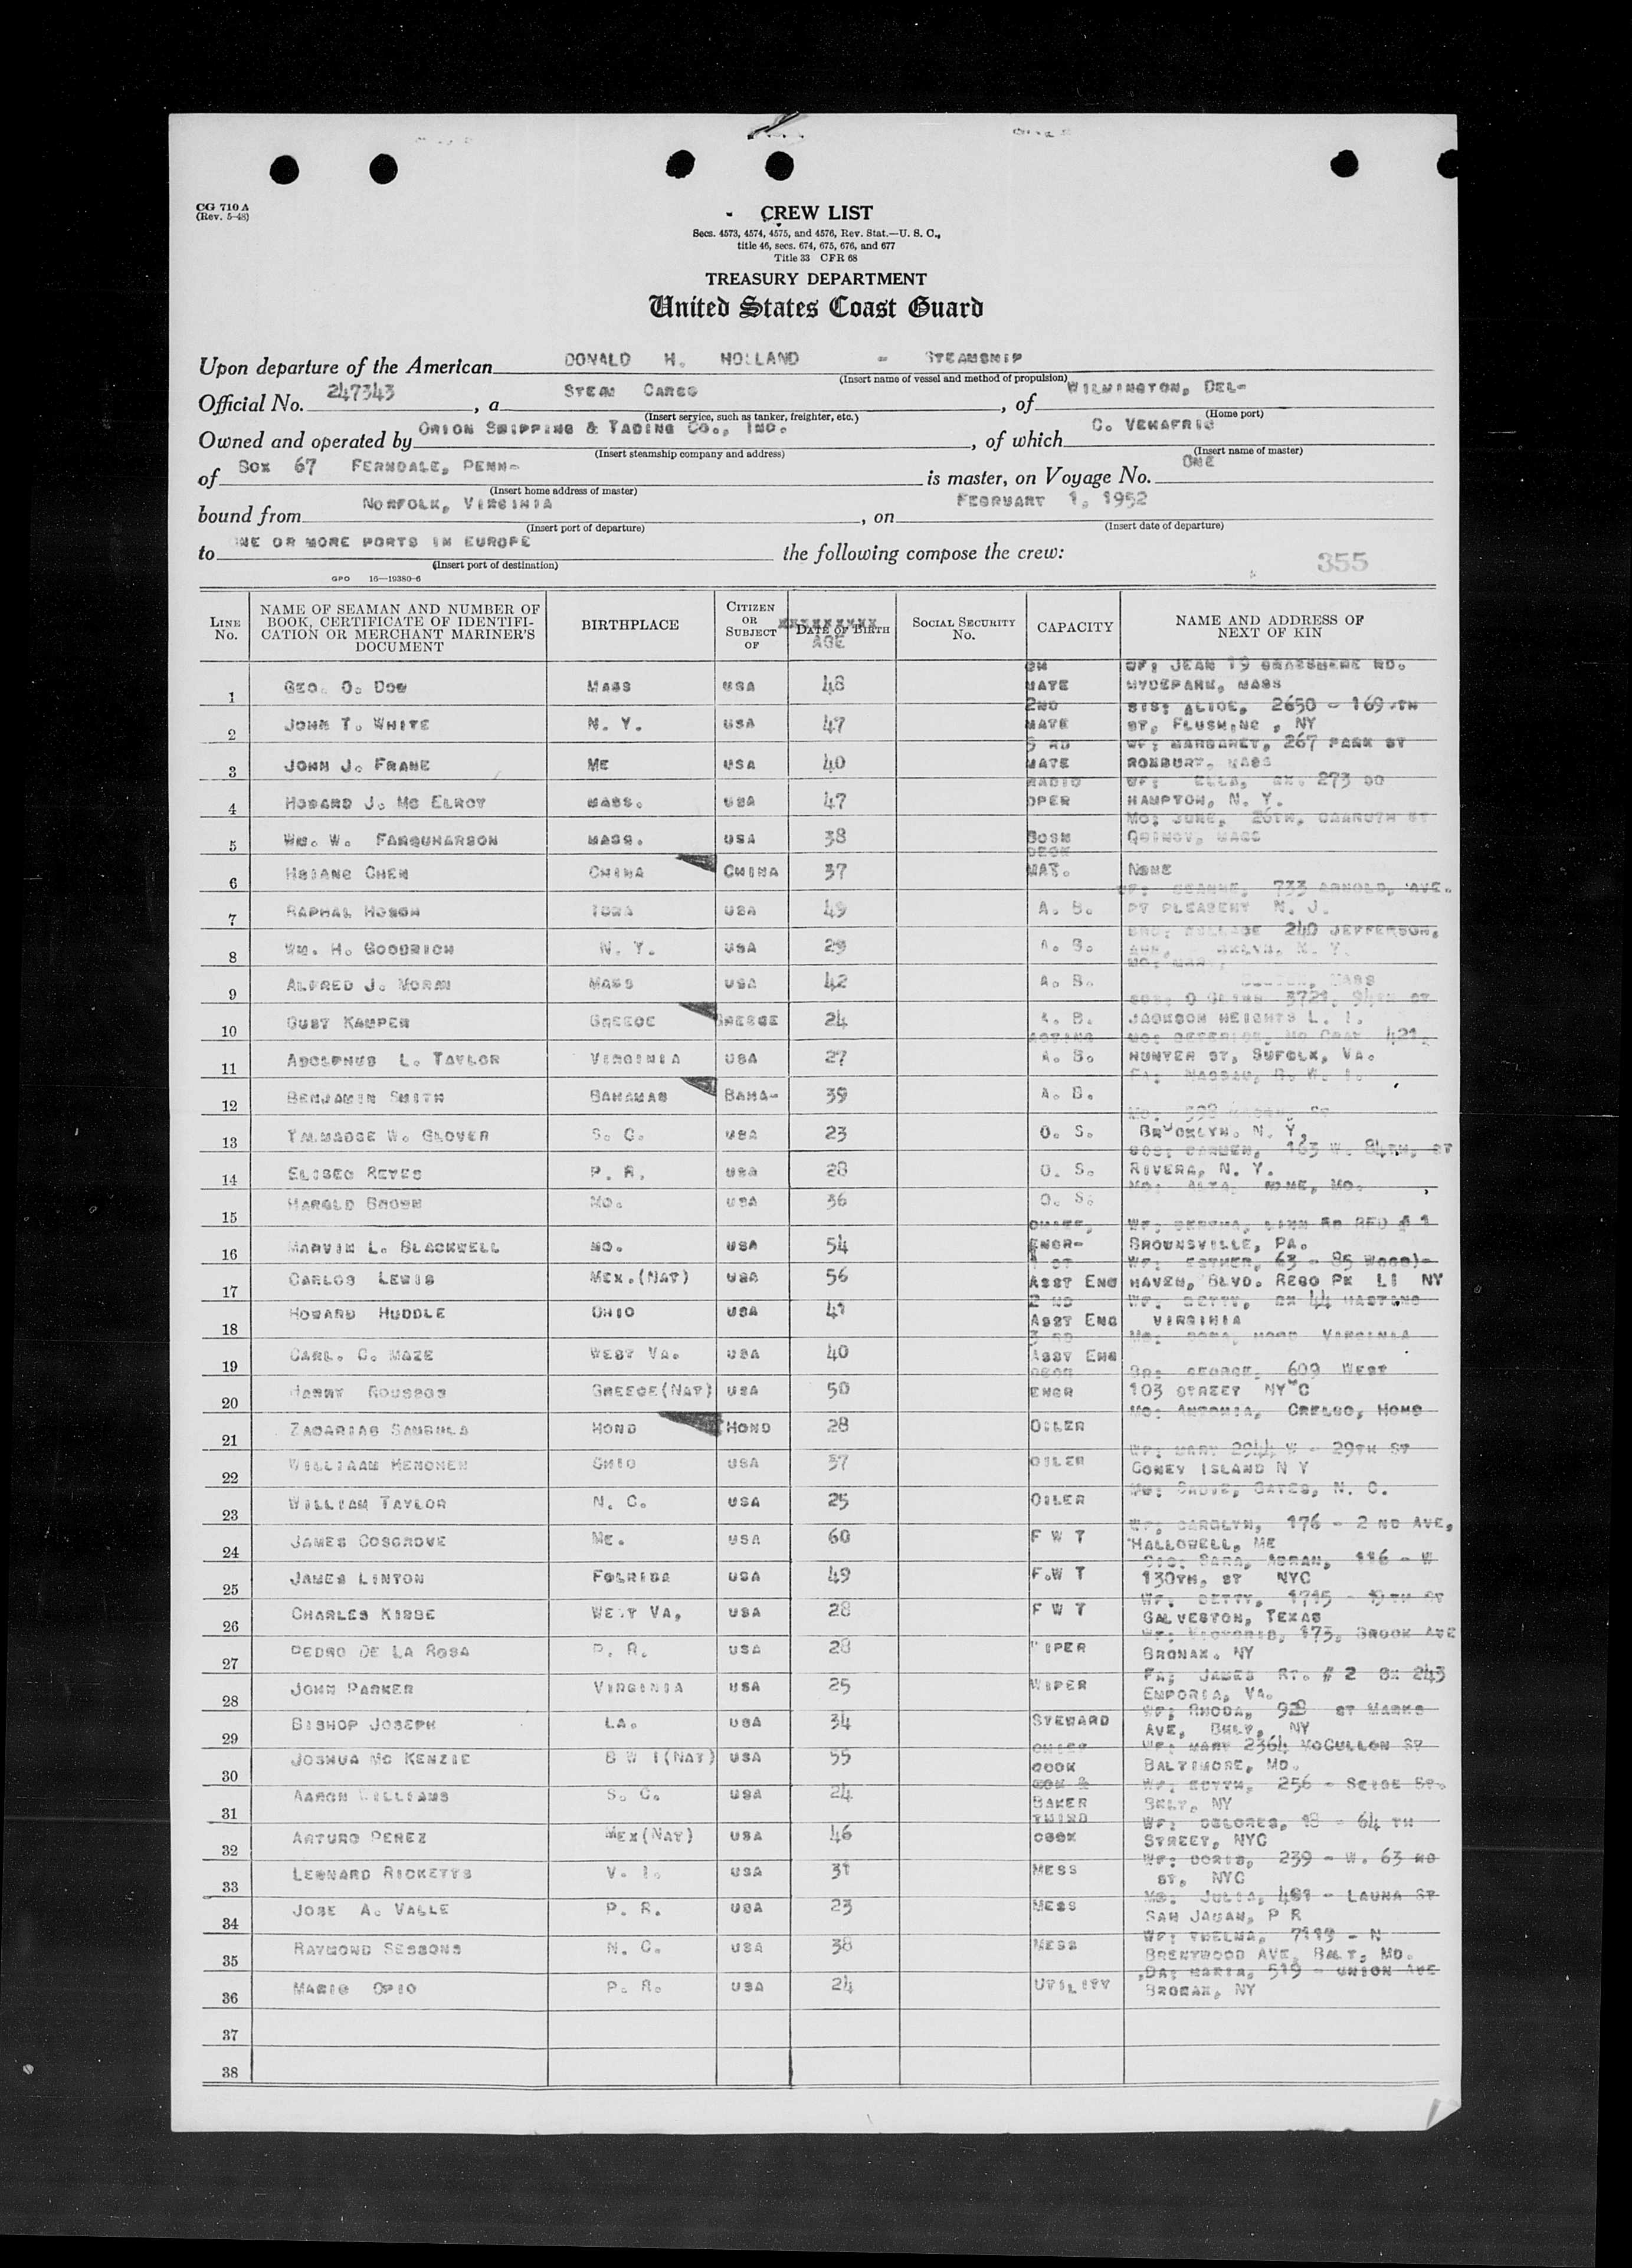 CG 710 A
(Rev. 5-48)
CREW LIST
Secs. 4573, 4574, 4575, and 4576, Rev. Stat.—U. S. C.,
title 46, secs. 674, 675, 676, and 677
Title 33 CFR 68
TREASURY DEPARTMENT
United States Coast Guard
Upon departure of the American DONALD H. HOLLAND - STEAMSHIP
(Insert name of vessel and method of propulsion)
Official No. 247343, a STEAM CARGO, of WILMINGTON, DEL-
(Insert service, such as tanker, freighter, etc.) (Home port)
Owned and operated by ORION SHIPPING & TADING CO., INC., of which C. VENAFRIO
(Insert steamship company and address) (Insert name of master)
of BOX 67 FERNDALE, PENN- is master, on Voyage No. ONE
(Insert home address of master)
bound from NORFOLK, VIRGINIA, on FEBRUARY 1, 1952
(Insert port of departure) (Insert date of departure)
to NE OR MORE PORTS IN EUROPE the following compose the crew:
(Insert port of destination)
355
GPO 16—19380-6
LINE No. NAME OF SEAMAN AND NUMBER OF BOOK, CERTIFICATE OF IDENTIFICATION OR MERCHANT MARINER'S DOCUMENT BIRTHPLACE CITIZEN OR SUBJECT OF DATE OF BIRTH AGE SOCIAL SECURITY No. CAPACITY NAME AND ADDRESS OF NEXT OF KIN
1 GEO. O. DOW MASS USA 48 CH MATE WF: JEAN 19 RD. HYDEPARK, MASS
2 JOHN T. WHITE N. Y. USA 47 2ND MATE SIS: ALICE, 2650 - 169 TH ST, FLUSHING, NY
3 JOHN J. FRANE ME USA 40 3 RD MATE WF: MARGARET, 267 PARK ST ROXBURY, MASS
4 HOWARD J. MC ELROY MASS. USA 47 RADIO OPER WF: ELLA, BX. 273 HAMPTON, N. Y.
5 WM. W. FARQUHARSON MASS. USA 38 BOSN MO: JUNE, 26TH, CARRUTH ST QUINCY, MASS
6 HSIANG CHEN CHINA CHINA 37 DECK MAT. NONE
7 RAPHAL HOSON IOWA USA 49 A. B. 733 ARNOLD, AVE. PT PLEASENT N. J.
8 WM. H. GOODRICH N. Y. USA 29 A. B. 240 JEFFERSON, N. Y.
9 ALFRED J. MORAN MASS USA 42 A. B. MASS
10 GUST KAMPER GREECE GREECE 24 A. B. 3721, 94TH ST JACKSON HEIGHTS L. I.
11 ADOLPHUS L. TAYLOR VIRGINIA USA 27 ACTING A. B. 421, HUNTER ST, SUFOLK, VA.
12 BENJAMIN SMITH BAHAMAS BAHA- 39 A. B. FA: NASSAU, B. W. I.
13 TALMADGE W. GLOVER S. C. USA 23 O. S. MO: 598 ST BROOKLYN. N. Y.
14 ELISEO REYES P. R. USA 28 O. S. COS: CARMEN, 163 W. 84TH, ST RIVERA, N. Y.
15 HAROLD BROWN MO. USA 36 O. S. MO: ALTA, MO.
16 MARVIN L. BLACKWELL MO. USA 54 CHIEF, ENGR- WF: BERTHA, LINN RD RFD # 1 BROWNSVILLE, PA.
17 CARLOS LEWIS MEX.(NAT) USA 56 1 ST ASST ENG WF: ESTHER, 63 - 85 WOOD)- HAVEN, BLVD. REGO PK LI NY
18 HOWARD HUDDLE OHIO USA 41 2 ND ASST ENG WF: BETTY, BX 44 HASTING VIRGINIA
19 CARL. C. MAZE WEST VA. USA 40 3 RD ASST ENG VIRGINIA
20 HARRY ROUSSOS GREECE(NAT) USA 50 DECK ENGR BR: GEORGE, 609 WEST 103 STREET NY C
21 ZACARIAS SAMBULA HOND HOND 28 OILER MO: ANTONIA, HOND
22 WILLIAAM HENCHEN OHIO USA 37 OILER WF: MARY 2944 W - 29TH ST CONEY ISLAND N Y
23 WILLIAM TAYLOR N. C. USA 25 OILER MO: SADIE, GATES, N. C.
24 JAMES COSGROVE ME. USA 60 F W T WF: CAROLYN, 176 - 2 ND AVE, HALLOWELL, ME
25 JAMES LINTON FOLRIDA USA 49 F.W T SIS: SARA, ADRAN, 116 - W 130TH, ST NYC
26 CHARLES KIBBE WEST VA, USA 28 F W T WF: BETTY, 1715 - 19 TH ST GALVESTON, TEXAS
27 PEDRO DE LA ROSA P. R. USA 28 WIPER WF: 173, BROOK AVE BRONAX. NY
28 JOHN PARKER VIRGINIA USA 25 WIPER FA; JAMES RT. # 2 BX 243 EMPORIA, VA.
29 BISHOP JOSEPH LA. USA 34 STEWARD WF; RHODA, 928 ST MARKS AVE, BKLY, NY
30 JOSHUA MC KENZIE B W I(NAT) USA 55 CHIEF COOK WF: MARY 2364 MCCULLOH ST BALTIMORE, MD.
31 AARON WILLIAMS S. C. USA 24 COK & BAKER WF: EDYTH, 256 - BKLY, NY
32 ARTURO PEREZ MEX(NAT) USA 46 THIRD COOK WF: DOLORES, 18 - 64 TH STREET, NYC
33 LENNARD RICKETTS V. I. USA 31 MESS WF: DORIS, 239 - W. 63 RD ST, NYC
34 JOSE A. VALLE P. R. USA 23 MESS MO: JULIA, 401 - LAUNA ST SAN JAUAN, P R
35 RAYMOND SESSONS N. C. USA 38 MESS WF: THELMA, 7119 - N BRENTWOOD AVE, BALT, MD.
36 MARIO OPIO P. R. USA 24 UTILITY DA: MARIA, 519 - UNION AVE BRONAX, NY
37
38